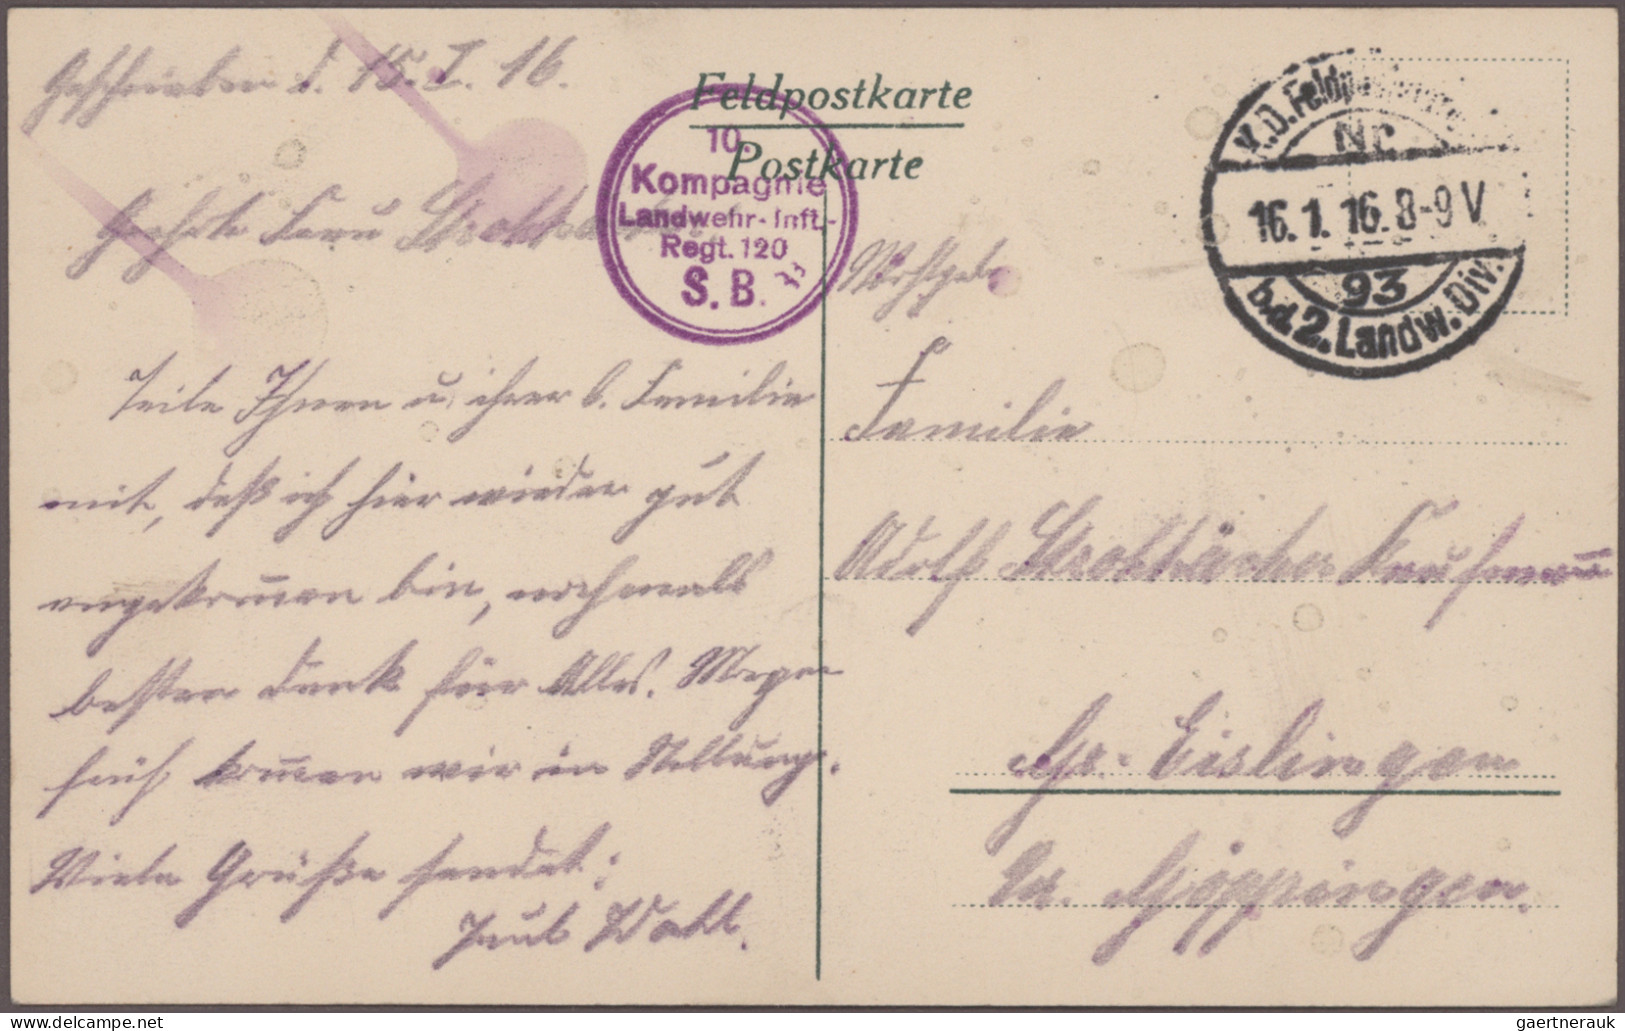 Geschrieben d. 15. I. 16.
Feldpostkarte
Postkarte
10.
Kompagnie
Landwehr-Inft.-
Regt. 120
S. B.
K.D. Feldpost
Nr.
16. 1. 16. 8-9 V
93
b.d. 2. Landw. Div.
Geehrte Frau
Teile Ihnen u. ihrer l. Familie
mit, daß ich hier wieder gut
angekommen bin, nochmals
besten Dank für Alles. Morgen
früh kommen wir in Stellung.
Viele Grüße sendet:
Wahl.
Familie
Adolf Strohbäcker Kaufmann
Gr.-Eislingen
Göppingen.
www.delcampe.net
gaertnerauk